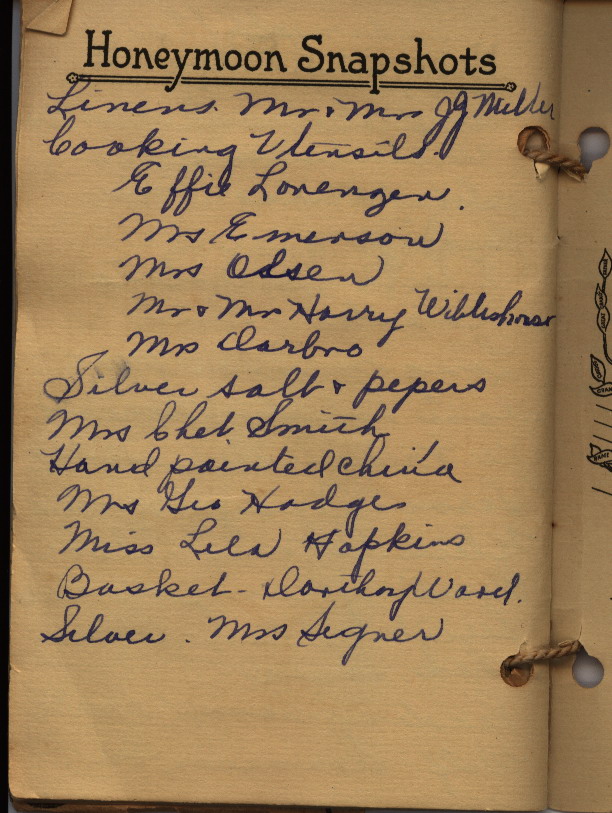 Honeymoon Snapshots
Linens. Mr. & Mrs JG Miller
Cooking Utensils.
Effie Lorengen.
Mrs Emerson
Mrs Olsen
Mr & Mrs Harry
Mrs Darbro
Silver salt & pepers
Mrs Chet Smith
Hand painted china
Mrs Geo Hodges
Miss Lela Hopkins
Basket - Dorthory Ward.
Silver. Mrs Segner